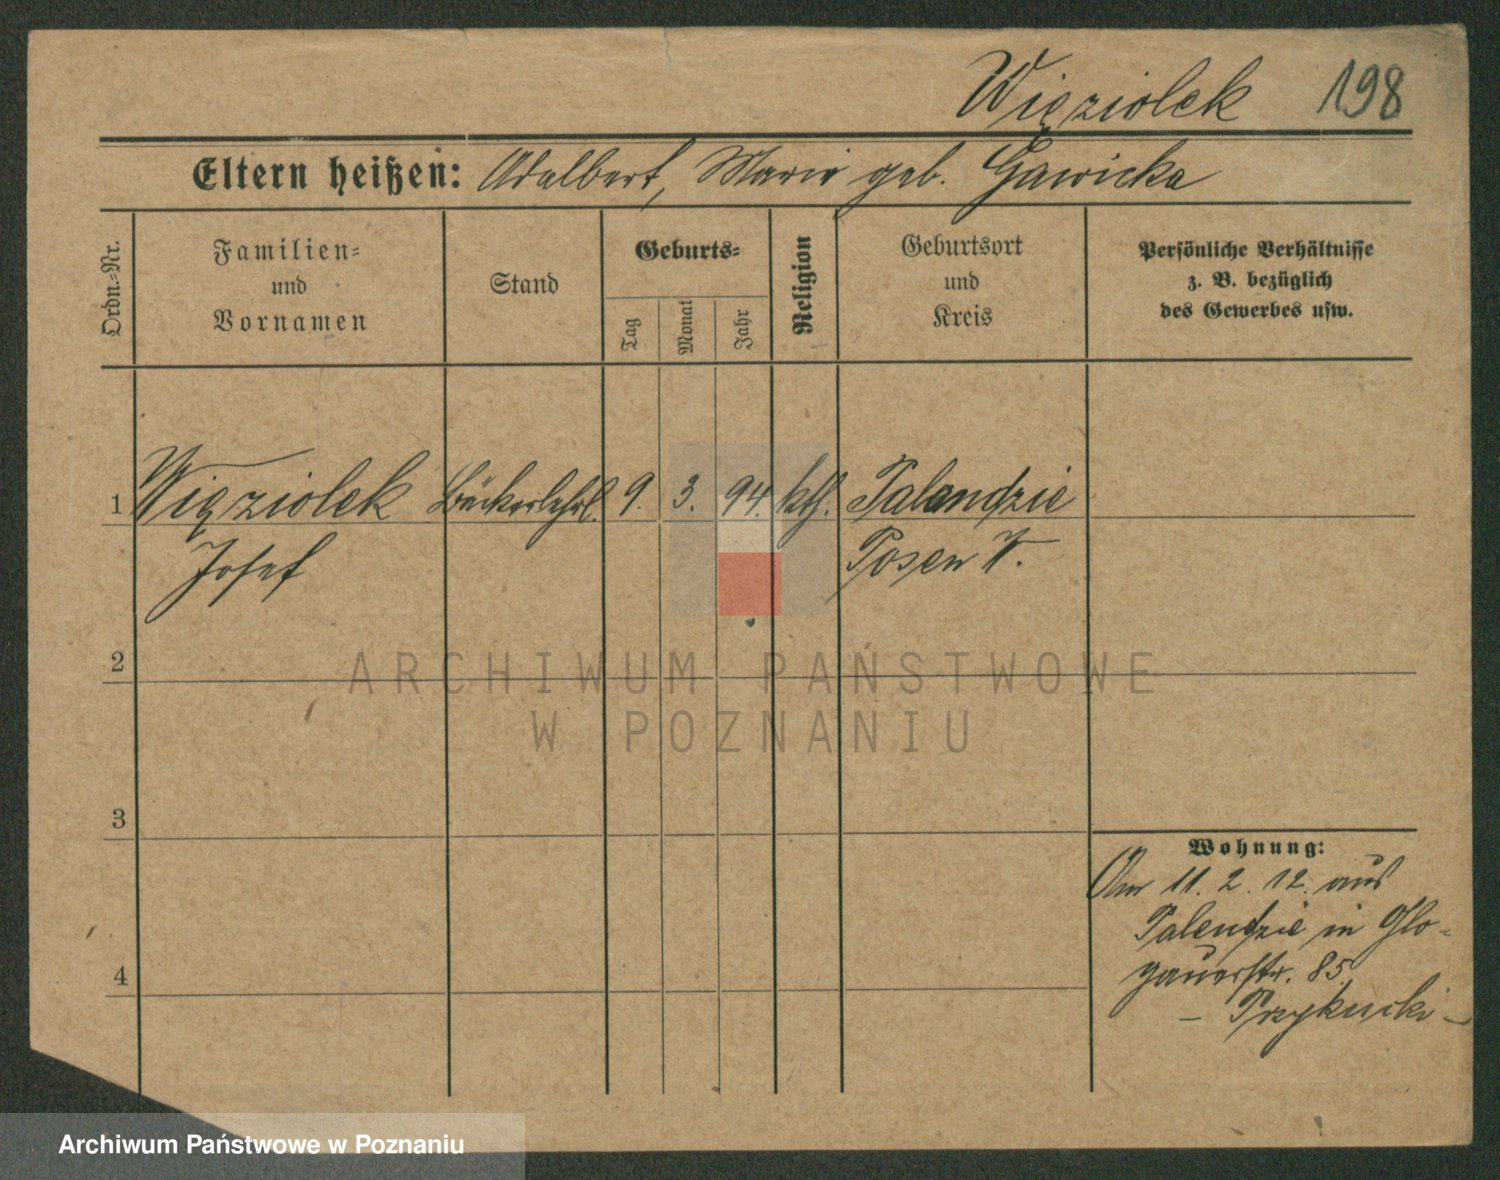 Więziolek 198
Eltern heißen: Adalbert, Marie geb. Gawicka
Ordn.-Nr.
Familien-
und
Vornamen
Stand
Geburts-
Tag
Monat
Jahr
Religion
Geburtsort
und
Kreis
Persönliche Verhältnisse
z. B. bezüglich
des Gewerbes usw.
1 Więziolek Bäckerlehrl. 9. 3. 94. kth. Palendzie
Josef Posen W.
2
3
4
Wohnung:
Am 11. 2. 12. aus
Palendzie in Glo-
gauerstr. 85.
- Przykucki -
ARCHIWUM PAŃSTWOWE
W POZNANIU
Archiwum Państwowe w Poznaniu